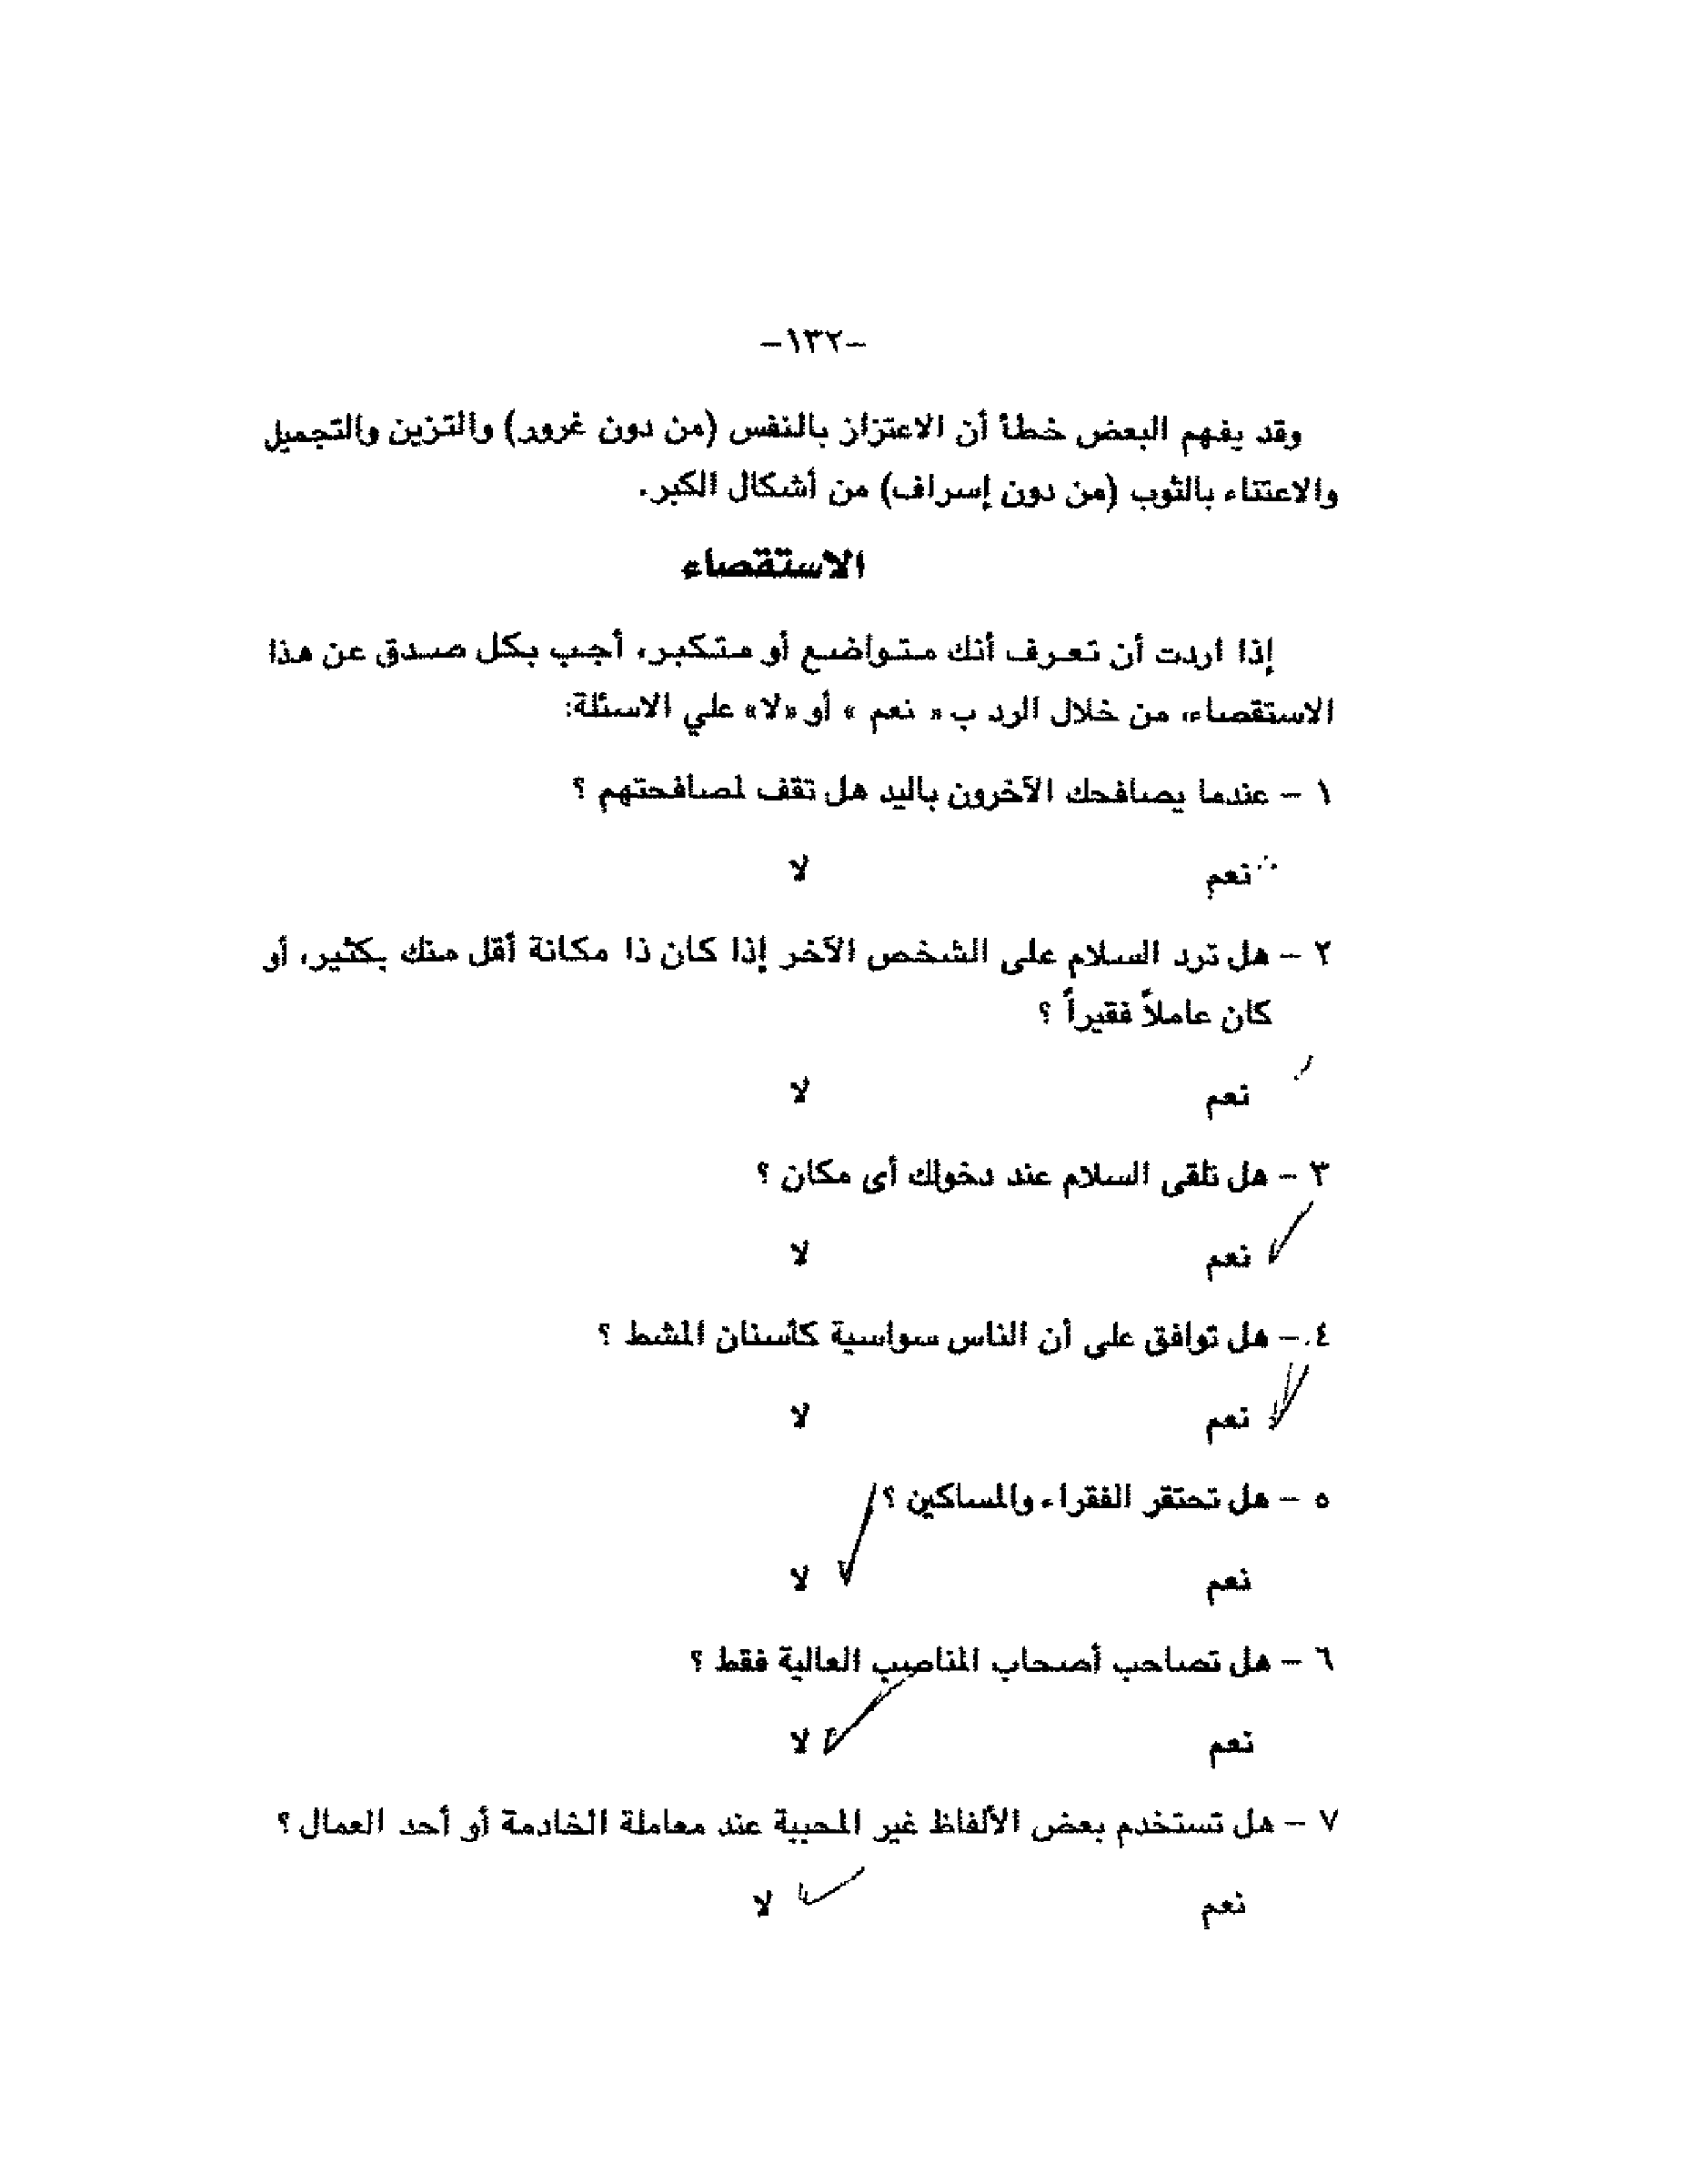 -١٣٢-
وقد يفهم البعض خطأ أن الاعتزاز بالنفس (من دون غرور) والتزين والتجميل
والاعتناء بالثوب (من دون إسراف) من أشكال الكبر.
الاستقصاء
إذا اردت أن تعرف أنك متواضع أو متكبر، أجب بكل صدق عن هذا
الاستقصاء، من خلال الرد ب « نعم » أو «لا» علي الاسئلة:
١ - عندما يصافحك الآخرون باليد هل تقف لمصافحتهم ؟
نعم لا
٢ - هل ترد السلام على الشخص الآخر إذا كان ذا مكانة أقل منك بكثير، أو
كان عاملاً فقيراً ؟
نعم لا
٣ - هل تلقى السلام عند دخولك أى مكان ؟
نعم لا
٤ - هل توافق على أن الناس سواسية كأسنان المشط ؟
نعم لا
٥ - هل تحتقر الفقراء والمساكين ؟
نعم لا
٦ - هل تصاحب أصحاب المناصب العالية فقط ؟
نعم لا
٧ - هل تستخدم بعض الألفاظ غير المحببة عند معاملة الخادمة أو أحد العمال ؟
نعم لا